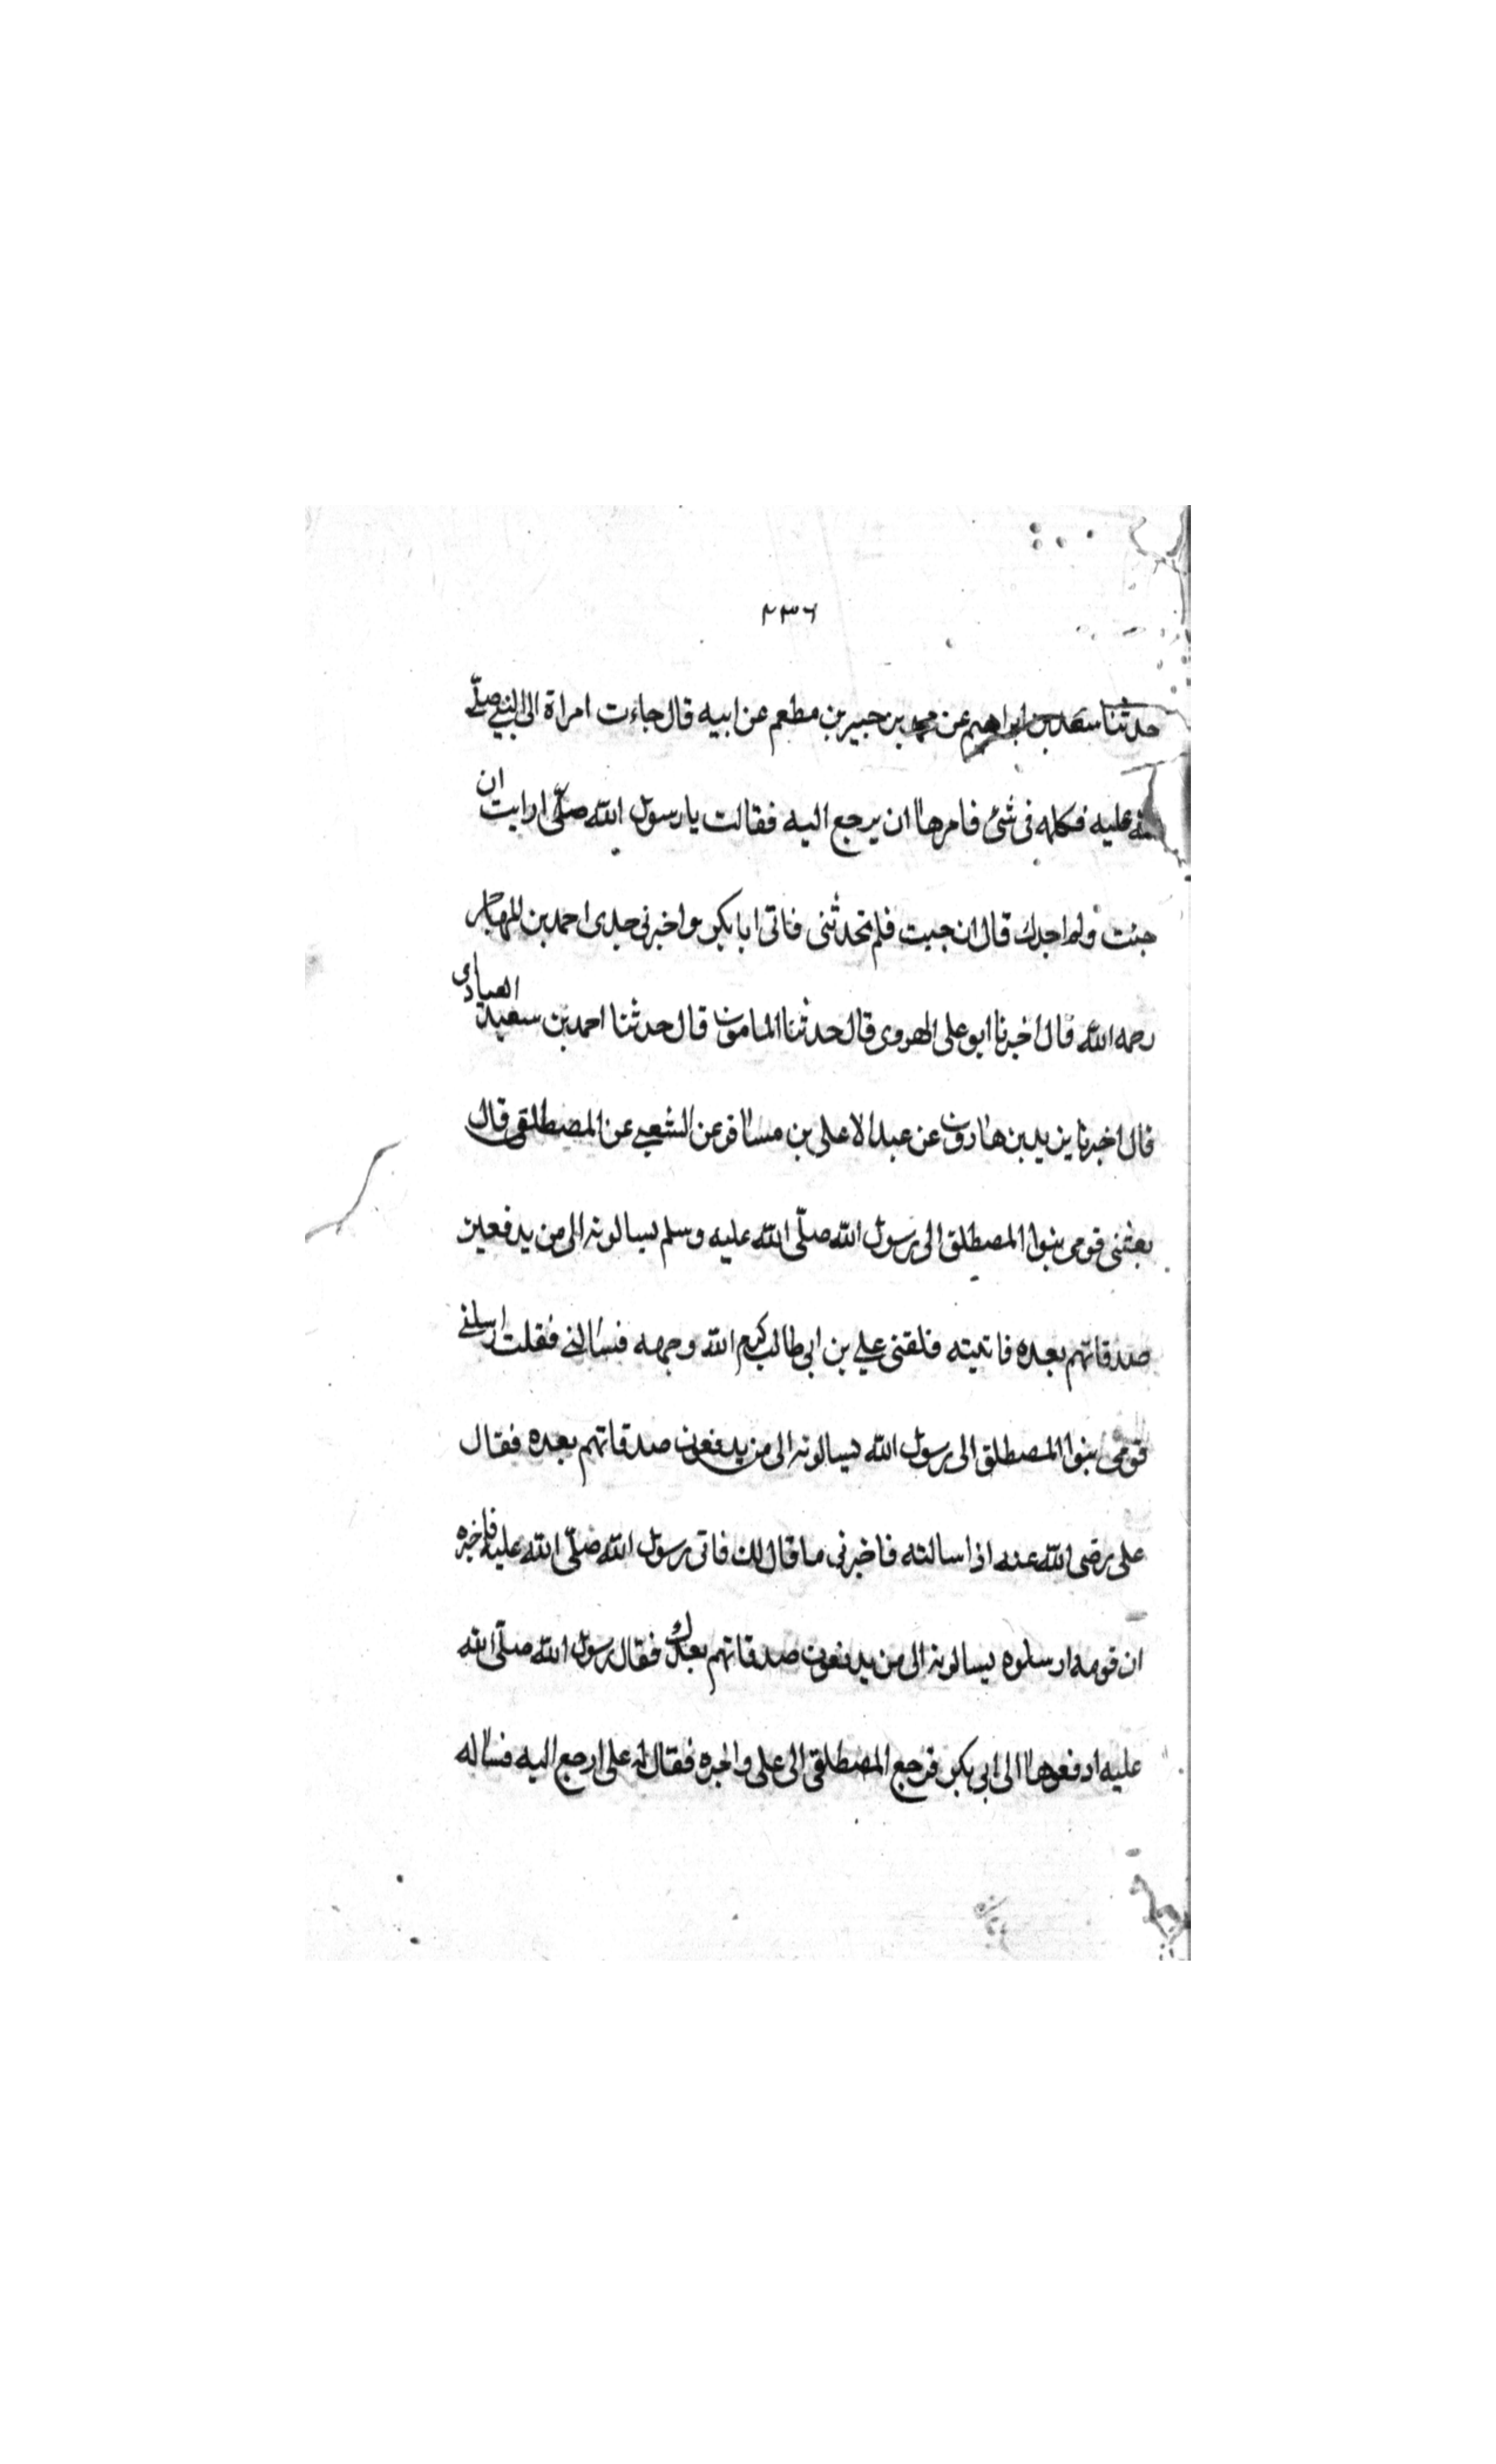 ٢٣٦
حدثنا سعد بن ابراهيم عن محمد بن جبير بن مطعم عن ابيه قال جاءت امراة الى النبي صلى
الله عليه فكلمه فى شئ فامرها ان يرجع اليه فقالت يا رسول الله صلى ارايت ان
جئت ولم اجدك قال ان جيت فلم تحدثنى فاتى ابا بكر واخبرنى جدى احمد بن المهاجر
رحمه الله قال اخبرنا ابو على الهروى قال حدثنا المامون قال حدثنا احمد بن سعيد العبادى
قال اخبرنا يزيد بن هارون عن عبد الاعلى بن مسافر عن الشعبي عن المصطلقى قال
بعثنى قومى بنوا المصطلق الى رسول الله صلى الله عليه وسلم يسالونه الى من يدفعين
صدقاتهم بعده فاتيته فلقنى علي بن ابى طالب كرم الله وجهه فسالنى فقلت ارسلنى
قومى بنوا المصطلق الى رسول الله يسالونه الى من يدفعون صدقاتهم بعده فقال
على رضى الله عنه اذا سالته فاخبرنى ما قال لك فاتى رسول الله صلى الله عليه فاخبره
ان قومه ارسلوه يسالونه الى من يدفعون صدقاتهم بعدك فقال رسول الله صلى الله
عليه ادفعوها الى ابى بكر فرجع المصطلقى الى على واخبره فقال له على ارجع اليه فساله